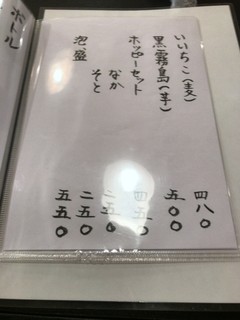 いいちこ(麦)
四八〇
黒霧島(芋)
五〇〇
ホッピーセット
四五〇
なか
二五〇
そと
二五〇
泡盛
五五〇
ボトル